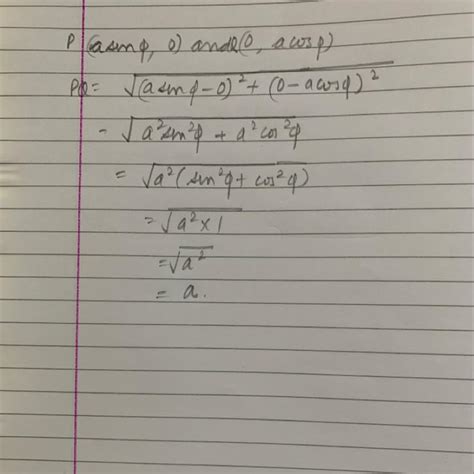 P (a sinφ, 0) and Q(0, a cosφ)
PQ = √(a sinφ - 0)² + (0 - a cosφ)²
- √a² sin²φ + a² cos²φ
= √a² (sin²φ + cos²φ)
= √a² × 1
= √a²
= a.